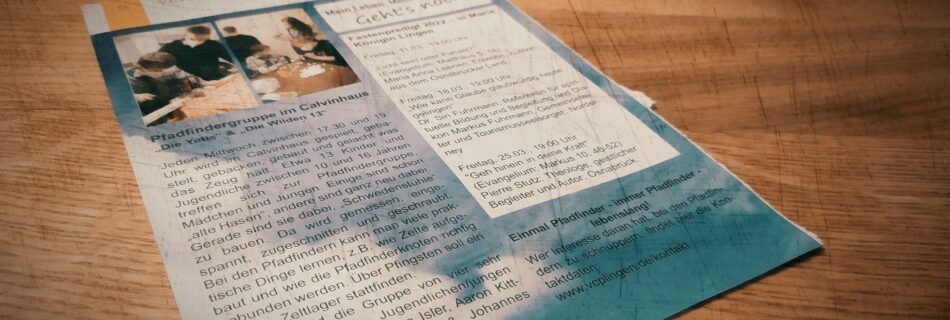 Mein Leben, Mein
Geht's noc
Fastenpredigt 2022 – in Maria
Königin Lingen
Freitag, 11.03., 19.00 Uhr
(Evangelium: Matthäus 5, 14)
aus dem Osnabrücker Land.
Freitag, 18.03., 19.00 Uhr
„Wie kann Glaube glaubwürdig heute
gelingen"
Dr. Sin Fuhrmann, Referentin für spiri-
tuelle Bildung und Begleitung und Dia-
kon Markus Fuhrmann, Gemeindelei-
ter und Tourismusseelsorger
ney
Freitag, 25.03., 19.00 Uhr
"Geh hinein in deine Kraft"
(Evangelium: Markus 10, 46-52)
Pierre Stutz, Theologe, geistlicher
Begleiter und Autor, Osnabrück.
Pfadfindergruppe im Calvinhaus
„Die Yetis" & „Die Wilden 13"
Jeden Mittwoch zwischen 17.30 und 19
Uhr wird im Calvinhaus gespielt, geba-
stelt, gebaut und gelacht was
das Zeug hält. Etwa 13 Kinder und
Jugendliche zwischen 10 und 16 Jahren
treffen sich zur Pfadfindergruppe,
Mädchen und Jungen. Einige sind schon
„alte Hasen", andere sind ganz neu dabei.
Gerade sind sie dabei, „Schwedenstühle"
zu bauen. Da wird gemessen, einge-
spannt, zugeschnitten und geschraubt.
Bei den Pfadfindern kann man viele prak-
tische Dinge lernen, z.B. wie Zelte aufge-
baut und wie die Pfadfinderknoten richtig
gebunden werden. Über Pfingsten soll ein
Zeltlager stattfinden.
wird die Gruppe von vier sehr
Jugendlichen/jungen
Isler, Aaron Kitt-
& Johannes
Einmal Pfadfinder - immer Pfadfinder -
lebenslang!
Wer Interesse daran hat, bei den Pfadfin-
dern zu schnuppern, findet hier die Kon-
taktdaten:
www.vcplingen.de/kontakt